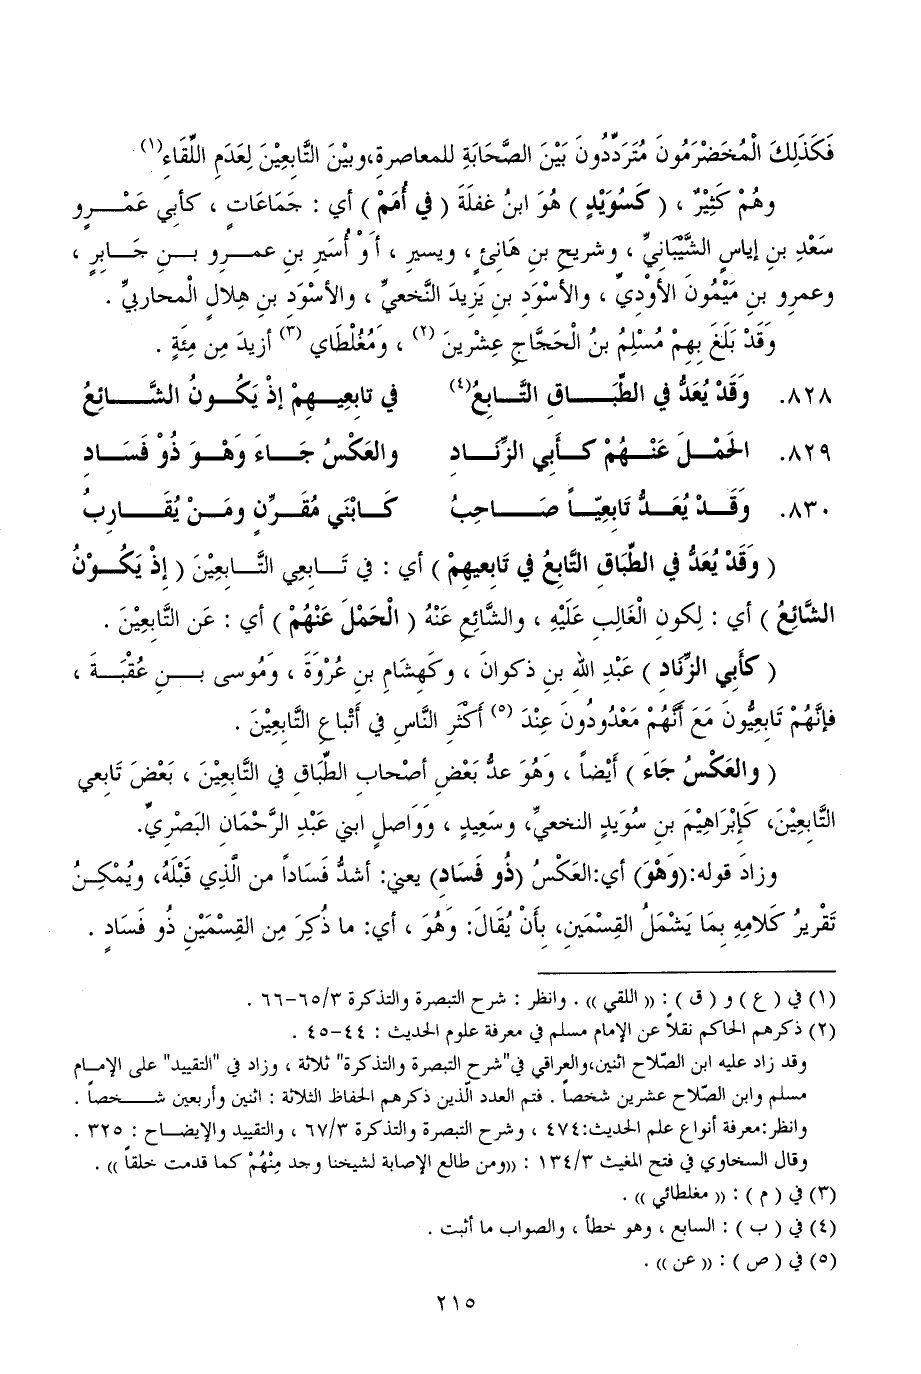 فَكَذَلِكَ الْمُخَضْرَمُونَ مُتَرَدِّدُونَ بَيْنَ الصَّحَابَةِ للمعاصرة،وبيْنَ التَّابِعِيْنَ لِعَدمِ اللِّقَاءِ(١).
وهُمْ كَثِيْرٌ ، ( كَسُوَيْدٍ ) هُوَ ابنُ غفلَةَ ( في أُمَمْ ) أي : جَمَاعَاتٍ ، كأبي عَمْرو
سَعْدِ بنِ إياسٍ الشَّيْبَانيِّ ، وشريحِ بنِ هَانئٍ ، ويسيرِ ، أوْ أُسَيرِ بنِ عمرِو بنِ جَابرٍ ،
وعمرِو بنِ مَيْمُونَ الأوْديِّ ، والأسْوَدِ بنِ يَزِيدَ النَّخعيِّ ، والأسْوَدِ بنِ هِلالٍ الْمحاربيِّ .
وَقَدْ بَلَغَ بِهِمْ مُسْلِمُ بنُ الْحَجَّاجِ عِشْرِينَ (٢) ، ومُغُلْطَاي (٣) أزيدَ مِن مِئَةٍ .
٨٢٨. وَقَدْ يُعَدُّ في الطِّبَاقِ التَّابعُ(٤) في تابعِيهِمْ إذْ يَكُونُ الشَّائعُ
٨٢٩. الحَمْلَ عَنْهُمْ كأبي الزِّنَادِ والعَكْسُ جَاءَ وَهْوَ ذُوْ فَسَادِ
٨٣٠. وَقَدْ يُعَدُّ تَابعِيّاً صَاحِبُ كَابْنَي مُقَرِّنٍ ومَنْ يُقَارِبُ
( وَقَدْ يُعَدُّ في الطِّبَاقِ التَّابعُ في تَابِعِيهِمْ ) أي : في تَابِعِي التَّابِعِيْنَ ( إذْ يَكُوْنُ
الشَّائِعُ ) أي : لِكونِ الْغَالِبِ عَلَيْهِ ، والشَّائِعِ عَنْهُ ( الْحَمْلَ عَنْهُمْ ) أي : عَنِ التَّابِعِيْنَ .
( كأبي الزِّنَادِ ) عَبْدِ اللهِ بنِ ذكوانَ ، وكَهِشَامِ بنِ عُرْوَةَ ، ومُوسى بنِ عُقْبَةَ ،
فإنَّهُمْ تَابِعِيُّونَ مَعَ أنَّهُمْ مَعْدُودُونَ عِنْدَ (٥) أَكْثَرِ النَّاسِ في أتْبَاعِ التَّابِعِيْنَ .
( والعَكْسُ جَاءَ ) أَيْضاً ، وَهُوَ عدُّ بَعْضِ أصْحَابِ الطِّبَاقِ في التَّابِعِيْنَ ، بَعْضَ تَابعي
التَّابِعِيْنَ، كَإِبْرَاهِيْمَ بنِ سُوَيدٍ النخعيِّ، وسَعِيدٍ ، ووَاصلٍ ابني عَبْدِ الرَّحْمَانِ البَصْريِّ.
وزادَ قوله:(وَهْوَ) أي:العَكْسُ (ذُو فَسَادِ) يعني: أشدُّ فَسَاداً من الَّذِي قَبْلَهُ، ويُمْكِنُ
تَقْرِيرُ كَلامِهِ بِمَا يَشْمَلُ القِسْمَينِ، بأَنْ يُقَالَ: وَهُوَ ، أي: ما ذُكِرَ مِن القِسْمَيْنِ ذُو فَسَادٍ .
(١) في ( ع ) و ( ق ) : (( اللقي )) . وانظر : شرح التبصرة والتذكرة ٦٥/٣-٦٦ .
(٢) ذكرهم الحاكم نقلاً عن الإمام مسلم في معرفة علوم الحديث : ٤٤-٤٥ .
وقد زاد عليه ابن الصّلاح اثنين،والعراقي في"شرح التبصرة والتذكرة" ثلاثة ، وزاد في "التقييد" على الإمام
مسلم وابن الصّلاح عشرين شخصاً . فتم العدد الّذين ذكرهم الحفاظ الثلاثة : اثنين وأربعين شخصاً .
وانظر:معرفة أنواع علم الحديث:٤٧٤ ، وشرح التبصرة والتذكرة ٦٧/٣ ، والتقييد والإيضاح : ٣٢٥ .
وقال السخاوي في فتح المغيث ١٣٤/٣ : ((ومن طالع الإصابة لشيخنا وجد مِنْهُمْ كما قدمت خلقاً )) .
(٣) في ( م ) : (( مغلطائي )) .
(٤) في ( ب ) : السابع ، وهو خطأ ، والصواب ما أثبت .
(٥) في ( ص ) : (( عن )) .
٢١٥